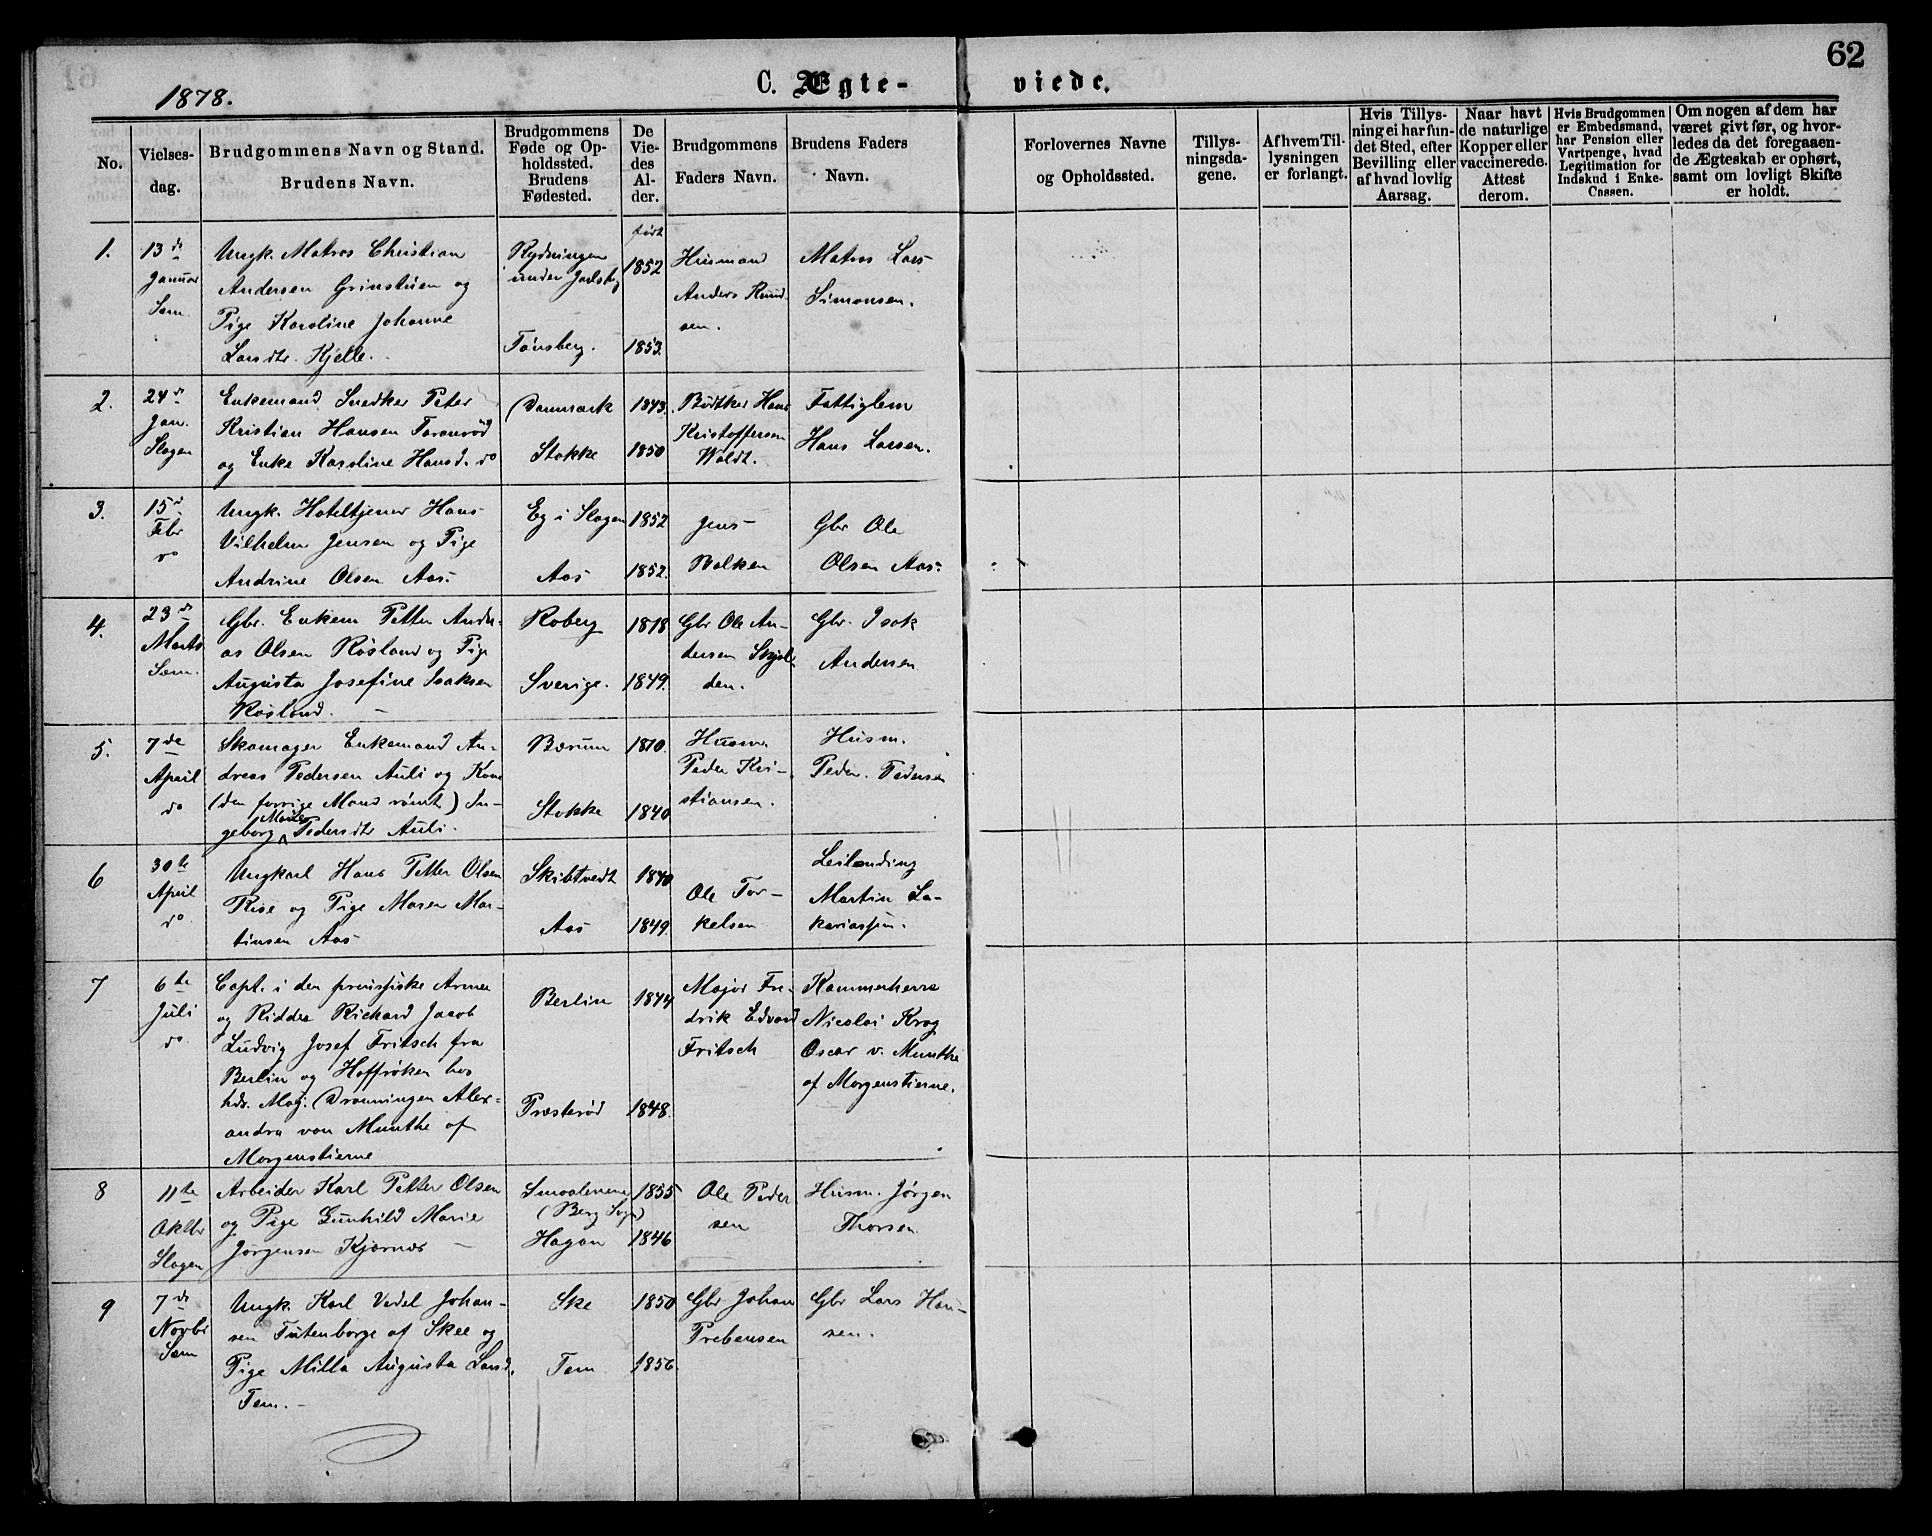 62
1878.
C. Ægte- viede.
No.
Vielses-
dag.
Brudgommens Navn og Stand.
Brudens Navn.
Brudgommens
Føde og Op-
holdssted.
Brudens
Fødested.
De
Vie-
des
Al-
der.
Brudgommens
Faders Navn.
Brudens Faders
Navn.
Forlovernes Navne
og Opholdssted.
Tillys-
ningsda-
gene.
Af hvem Til-
lysningen
er forlangt.
Hvis Tillys-
ning ei har fun-
det Sted, efter
Bevilling eller
af hvad lovlig
Aarsag.
Naar havt
de naturlige
Kopper eller
vaccinerede.
Attest
derom.
Hvis Brudgommen
er Embedsmand,
har Pension eller
Vartpenge, hvad
Legitimation for
Indskud i Enke-
Cassen.
Om nogen af dem har
været givt før, og hvor-
ledes da det foregaaen-
de Ægteskab er ophørt,
samt om lovligt Skifte
er holdt.
1.
13 de
Januar
Sem.
Ungk. Matros Christian
Andersen Grinstuen og
Pige Karoline Johanne
Larsdtr. Kjelle.
Rydningen
under Jarlsbg
Tønsberg.
født
1852
1853.
Husmand
Anders Knud-
sen.
Matros Lars
Simonsen.
2.
24 d
Jan.
Slagen
Enkemand Snedker Peter
Kristian Hansen Faranrød
og Enke Karoline Hansd. do
Danmark
Stokke
1843.
1850
Bødtker Hans
Kristoffersen
Woldt.
Fattiglem
Hans Larsen.
3.
15 d
Febr
do
Ungk. Hoteltjener Hans
Vilhelm Jensen og Pige
Andrine Olsen Aas.
Eg i Slagen
Aas
1852
1852.
Jens
Balken
Gbr Ole
Olsen Aas.
4.
23 d
Marts
Sem.
Gbr. Enkem Petter Andre-
as Olsen Røsland og Pige
Augusta Josefine Isaksen
Røsland.
Roberg
Sverige.
1818
1849.
Gbr Ole An-
dersen Skjel-
den.
Gbr. Isak
Andersen
5.
7 de
April
do
Skomager Enkemand An-
dreas Pedersen Auli og Kone
(den forrige Mand rømt) In-
geborg Marie Pedersdtr Auli.
Bærum
Stokke
1810.
1840
Husm.
Peder Kri-
stiansen.
Husm.
Peder Pedersen
6
30 te
April
do
Ungkarl Hans Petter Olsen
Rise og Pige Maren Mar-
tinsen Aas
Skibtvedt
Aas
1840
1849.
Ole Tor-
kelsen
Leilænding
Martin Sa-
kariassen.
7
6 te
Juli
do
Capt. i den preussiske Armee
og Ridder Richard Jacob
Ludvig Josef Fritsch fra
Berlin og Hoffrøken hos
hds. Maj. Dronningen Alex-
andra von Munthe af
Morgenstierne
Berlin
Præsterød
1844
1848.
Major Fre-
drik Edvard
Fritsch
Kammerherre
Nicolai Krog
Oscar v. Munthe
af Morgenstierne.
8
11 te
Oktbr
Slagen
Arbeider Karl Petter Olsen
og Pige Gunhild Marie
Jørgensen Kjærnæs
Smaalenene
(Berg Sogn)
Hagan
1855
1846
Ole Peder
sen
Husm. Jørgen
Thorsen
9
7 de
Novbr
Sem
Ungk. Karl Vedel Johan-
sen Tutenborge af Skee og
Pige Milla Augusta Larsd.
Tem.
Ske
Tem
1850
1856.
Gbr Johan
Prebensen
Gbr Lars Han-
sen.